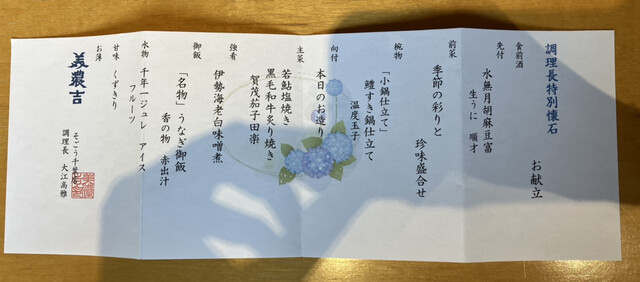 調理長特別懐石
お献立
食前酒
先付
水無月胡麻豆富
生うに 順才
前菜
季節の彩りと
珍味盛合せ
椀物
「小鍋仕立て」
鱧すき鍋仕立て
温度玉子
向付
本日のお造り
主菜
若鮎塩焼き
黒毛和牛炙り焼き
賀茂茄子田楽
強肴
伊勢海老白味噌煮
御飯
「名物」うなぎ御飯
香の物 赤出汁
水物
千年一ジュレ アイス
フルーツ
甘味
くずきり
お薄
美濃吉
そごう千葉店
調理長 大江高雅